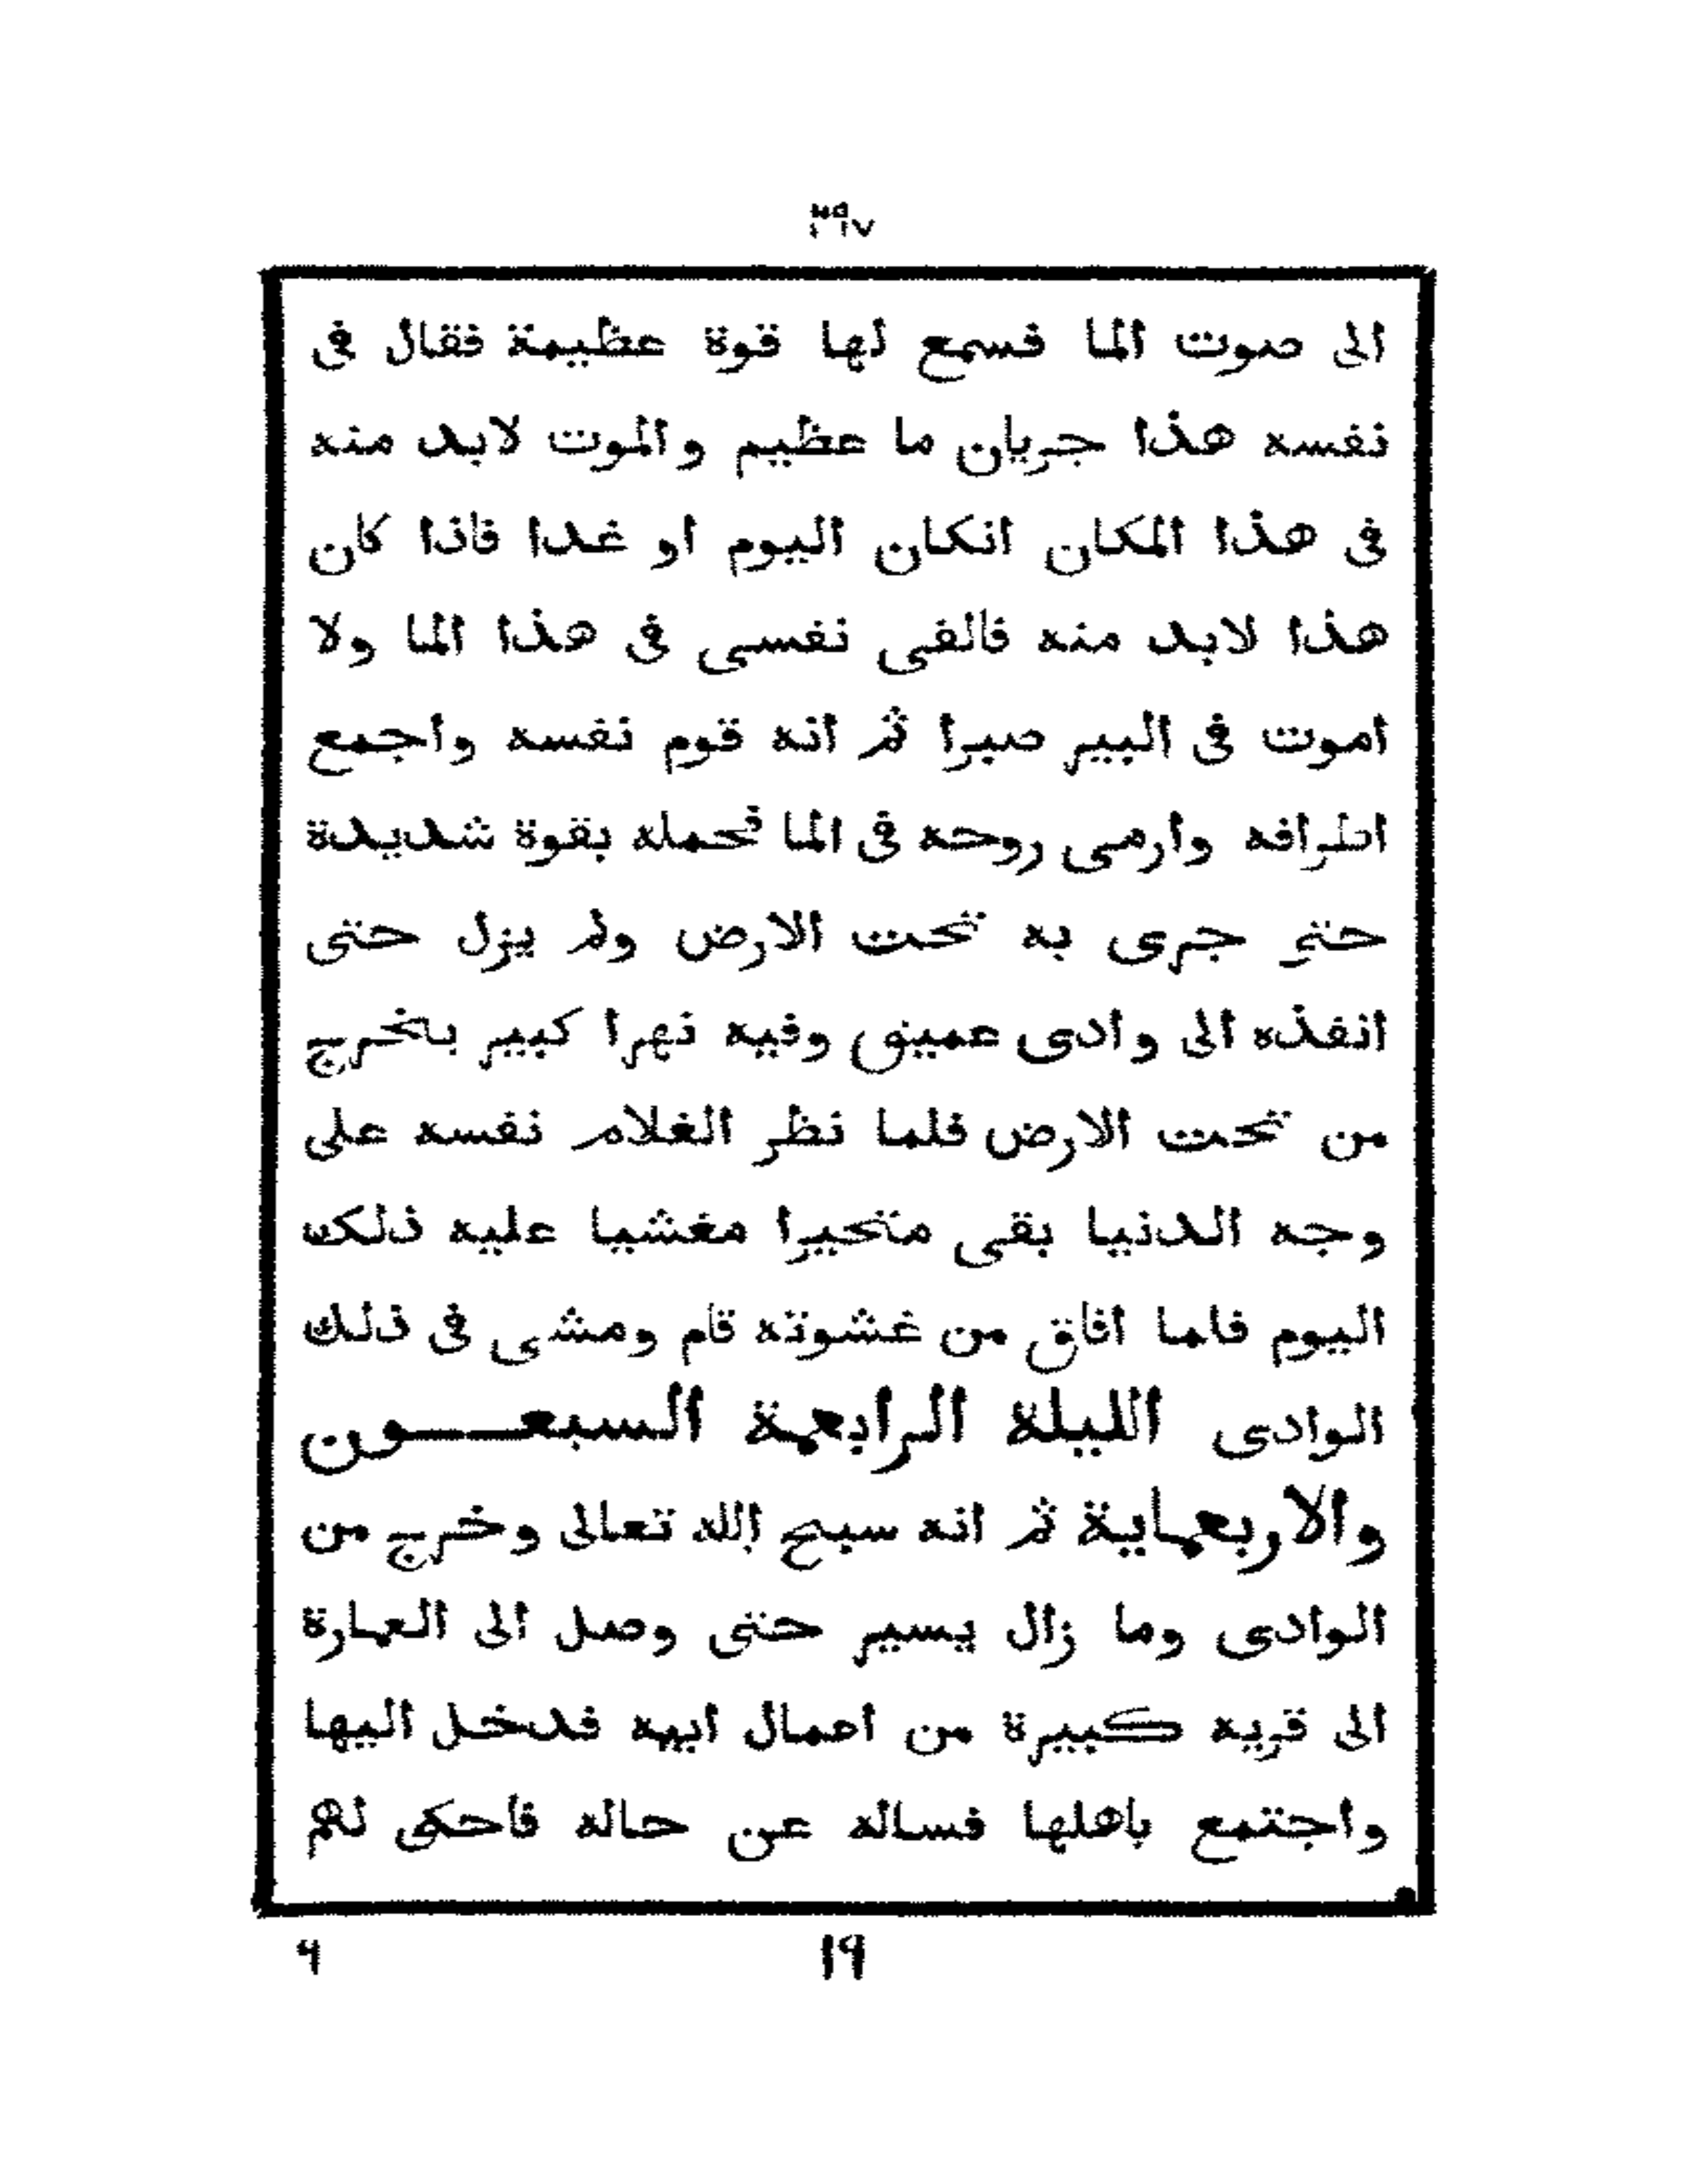 ٣٩٧
الى صوت الما فسمع لها قوة عظيمة فقال فى
نفسه هذا جريان ما عظيم والموت لابد منه
فى هذا المكان انكان اليوم او غدا فاذا كان
هذا لابد منه فالقى نفسى فى هذا الما ولا
اموت فى البير صبرا ثم انه قوم نفسه واجمع
اطرافه وارمى روحه فى الما فحمله بقوة شديدة
حتى جرى به تحت الارض ولم يزل حتى
انفذه الى وادى عميق وفيه نهرا كبير يخرج
من تحت الارض فلما نظر الغلام نفسه على
وجه الدنيا بقى متحيرا مغشيا عليه ذلك
اليوم فلما افاق من غشوته قام ومشى فى ذلك
الوادى الليلة الرابعة السبعـــون
والاربعماية ثم انه سبح الله تعالى وخرج من
الوادى وما زال يسير حتى وصل الى العمارة
الى قريه كبيرة من اعمال ابيه فدخل اليها
واجتمع باهلها فساله عن حاله فاحكى لهم
١٩
٩